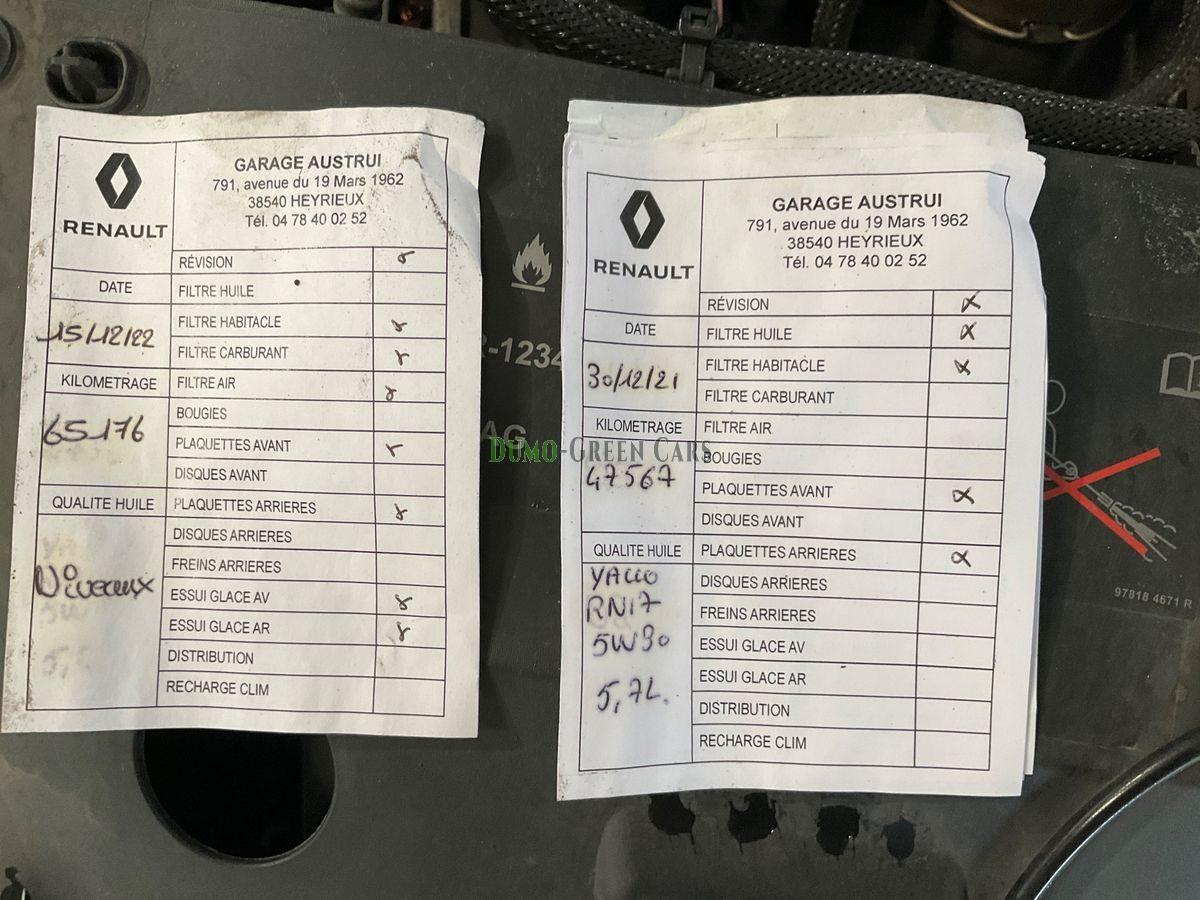 GARAGE AUSTRUI
791, avenue du 19 Mars 1962
38540 HEYRIEUX
Tél. 04 78 40 02 52
RENAULT
RÉVISION
DATE
FILTRE HUILE
15/12/22
FILTRE HABITACLE
FILTRE CARBURANT
KILOMETRAGE
FILTRE AIR
65176
BOUGIES
PLAQUETTES AVANT
DISQUES AVANT
QUALITE HUILE
PLAQUETTES ARRIERES
DISQUES ARRIERES
Niveaux
FREINS ARRIERES
ESSUI GLACE AV
ESSUI GLACE AR
DISTRIBUTION
RECHARGE CLIM
GARAGE AUSTRUI
791, avenue du 19 Mars 1962
38540 HEYRIEUX
Tél. 04 78 40 02 52
RENAULT
RÉVISION
DATE
FILTRE HUILE
30/12/21
FILTRE HABITACLE
FILTRE CARBURANT
KILOMETRAGE
FILTRE AIR
47567
BOUGIES
PLAQUETTES AVANT
DISQUES AVANT
QUALITE HUILE
PLAQUETTES ARRIERES
YACCO
DISQUES ARRIERES
RN17
FREINS ARRIERES
5W30
ESSUI GLACE AV
ESSUI GLACE AR
5,7L.
DISTRIBUTION
RECHARGE CLIM
-1234
AG
DUMO-GREEN CARS
97818 4671 R